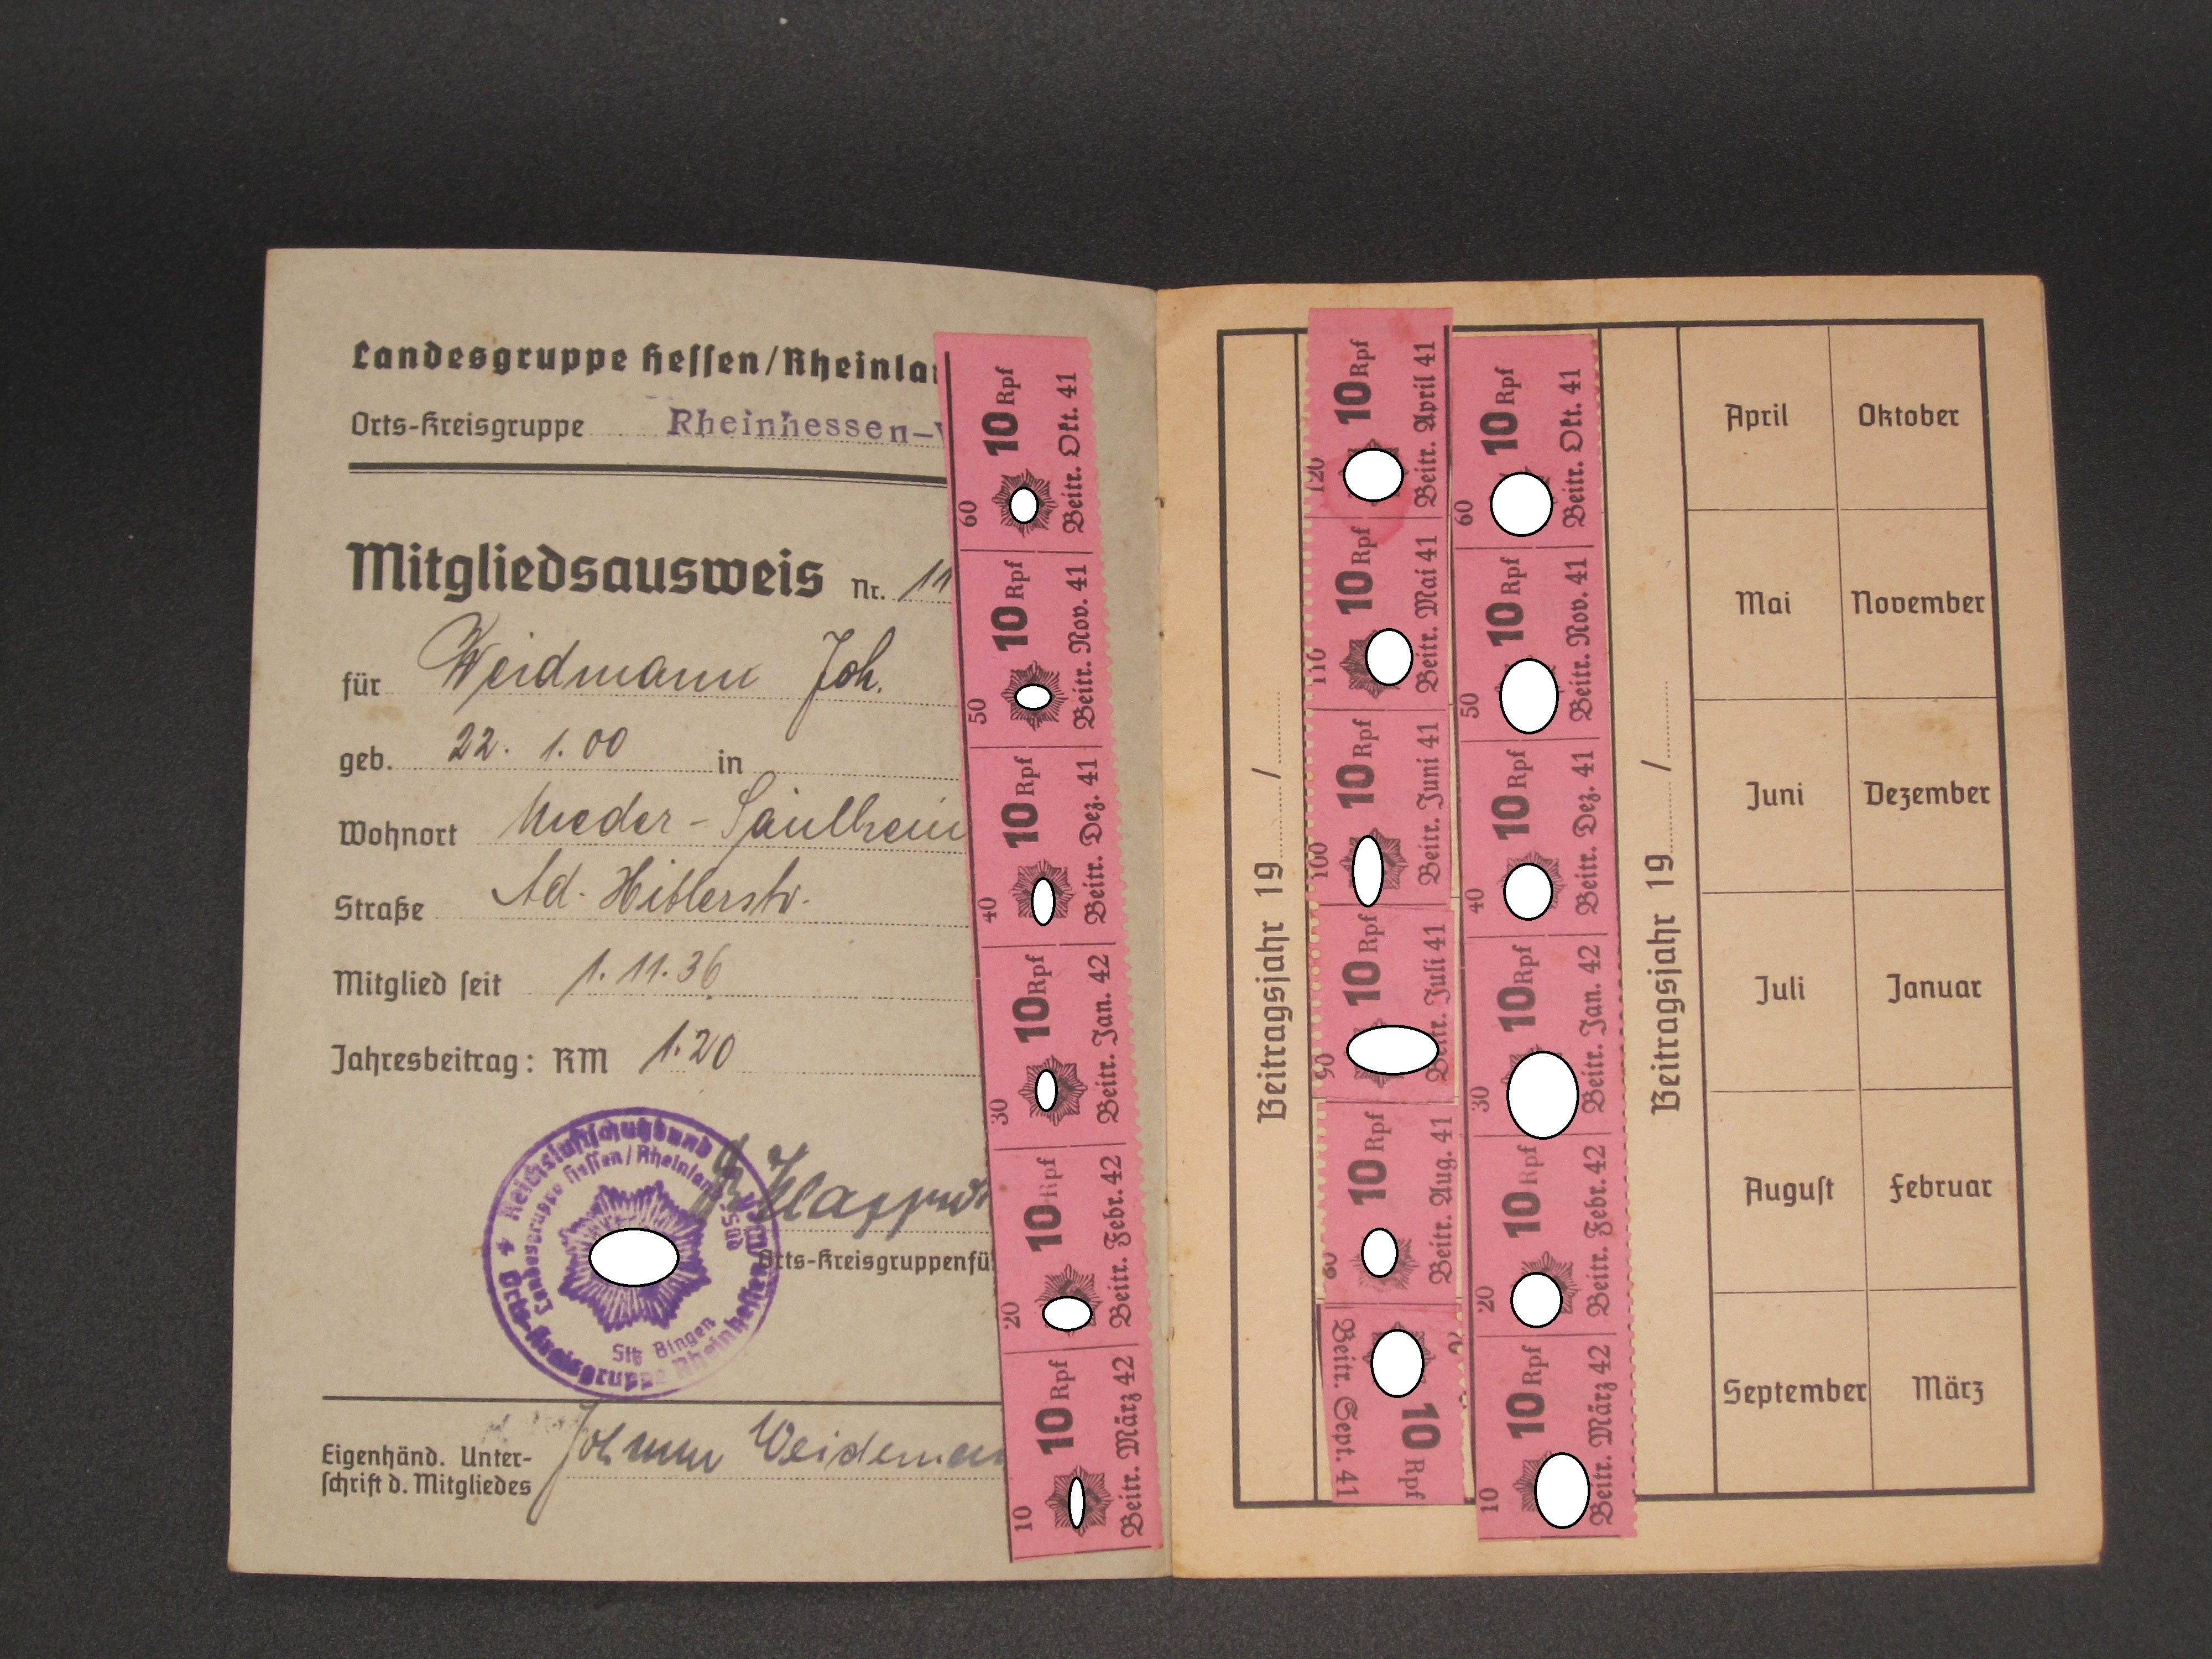 Landesgruppe Hessen/Rheinla
Orts-Kreisgruppe Rheinhessen-
Mitgliedsausweis Nr. 11
für Weidmann Joh.
geb. 22. 1. 00 in
Wohnort Nieder-Saulheim
Straße Ad. Hitlerstr.
Mitglied seit 1. 11. 36
Jahresbeitrag: RM 1.20
Reichsluftschutzbund
Landesgruppe Hessen/Rheinland Süd
Orts-Kreisgruppe Rheinhessen
Sitz Bingen
Orts-Kreisgruppenfü
Eigenhänd. Unter-
schrift d. Mitgliedes Johann Weidemann
60 10 Rpf Beitr. Okt. 41
50 10 Rpf Beitr. Nov. 41
40 10 Rpf Beitr. Dez. 41
30 10 Rpf Beitr. Jan. 42
20 10 Rpf Beitr. Febr. 42
10 10 Rpf Beitr. März 42
Beitragsjahr 19 /
120 10 Rpf Beitr. April 41
110 10 Rpf Beitr. Mai 41
100 10 Rpf Beitr. Juni 41
90 10 Rpf Beitr. Juli 41
10 Rpf Beitr. Aug. 41
10 Rpf Beitr. Sept. 41
60 10 Rpf Beitr. Okt. 41
50 10 Rpf Beitr. Nov. 41
40 10 Rpf Beitr. Dez. 41
30 10 Rpf Beitr. Jan. 42
20 10 Rpf Beitr. Febr. 42
10 10 Rpf Beitr. März 42
Beitragsjahr 19 /
April Oktober
Mai November
Juni Dezember
Juli Januar
August Februar
September März